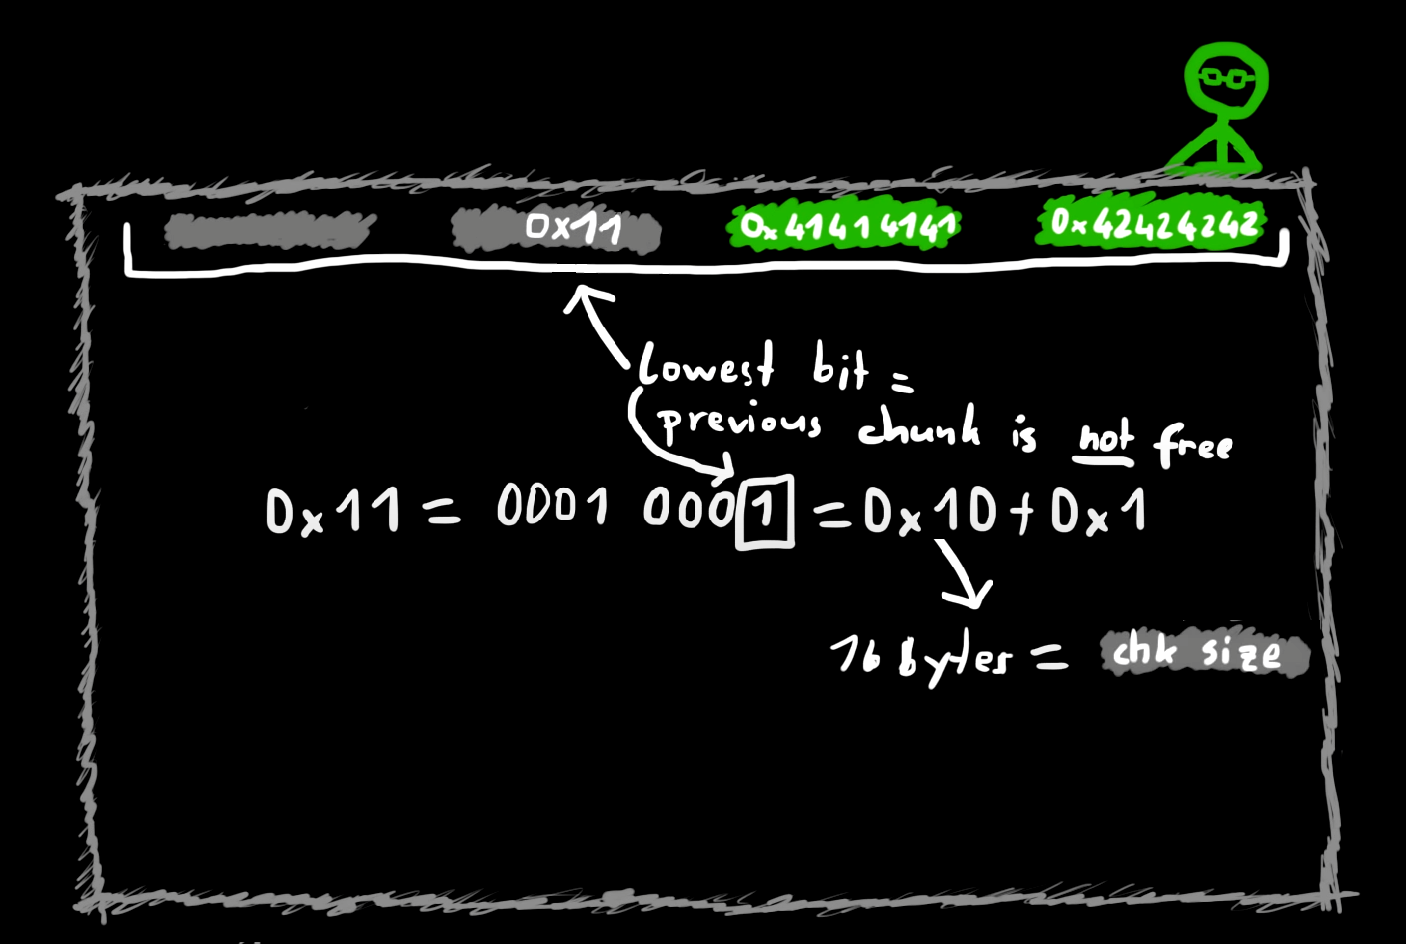 0x11 0x41414141 0x42424242
lowest bit =
previous chunk is not free
0x11 = 0001 0001 = 0x10 + 0x1
16 bytes = chk size